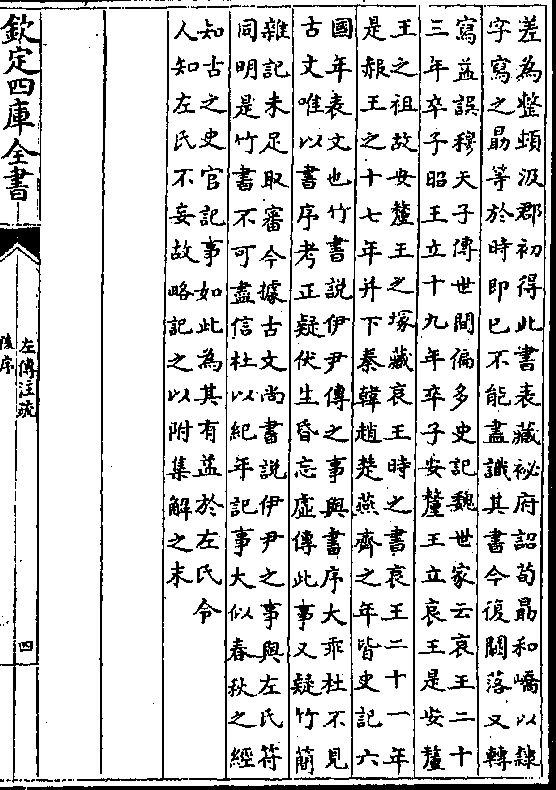 差為整頓汲郡初得此書表藏祕府詔荀勗和嶠以隸
字寫之勗等於時即已不能盡識其書今復闕落又轉
寫益誤穆天子傳世間偏多史記魏世家云哀王二十
三年卒子昭王立十九年卒子安釐王立哀王是安釐
王之祖故安釐王之塚藏哀王時之書哀王二十一年
是赧王之十七年并下秦韓趙楚燕齊之年皆史記六
國年表文也竹書說伊尹傳之事與書序大乖杜不見
古文唯以書序考正疑伏生昏忘虛傳此事又疑竹簡
雜記未足取審今據古文尚書說伊尹之事與左氏符
同明是竹書不可盡信杜以紀年記事大似春秋之經
知古之史官記事如此為其有益於左氏令
人知左氏不妄故略記之以附集解之末
欽定四庫全書
左傳注疏
後序
四